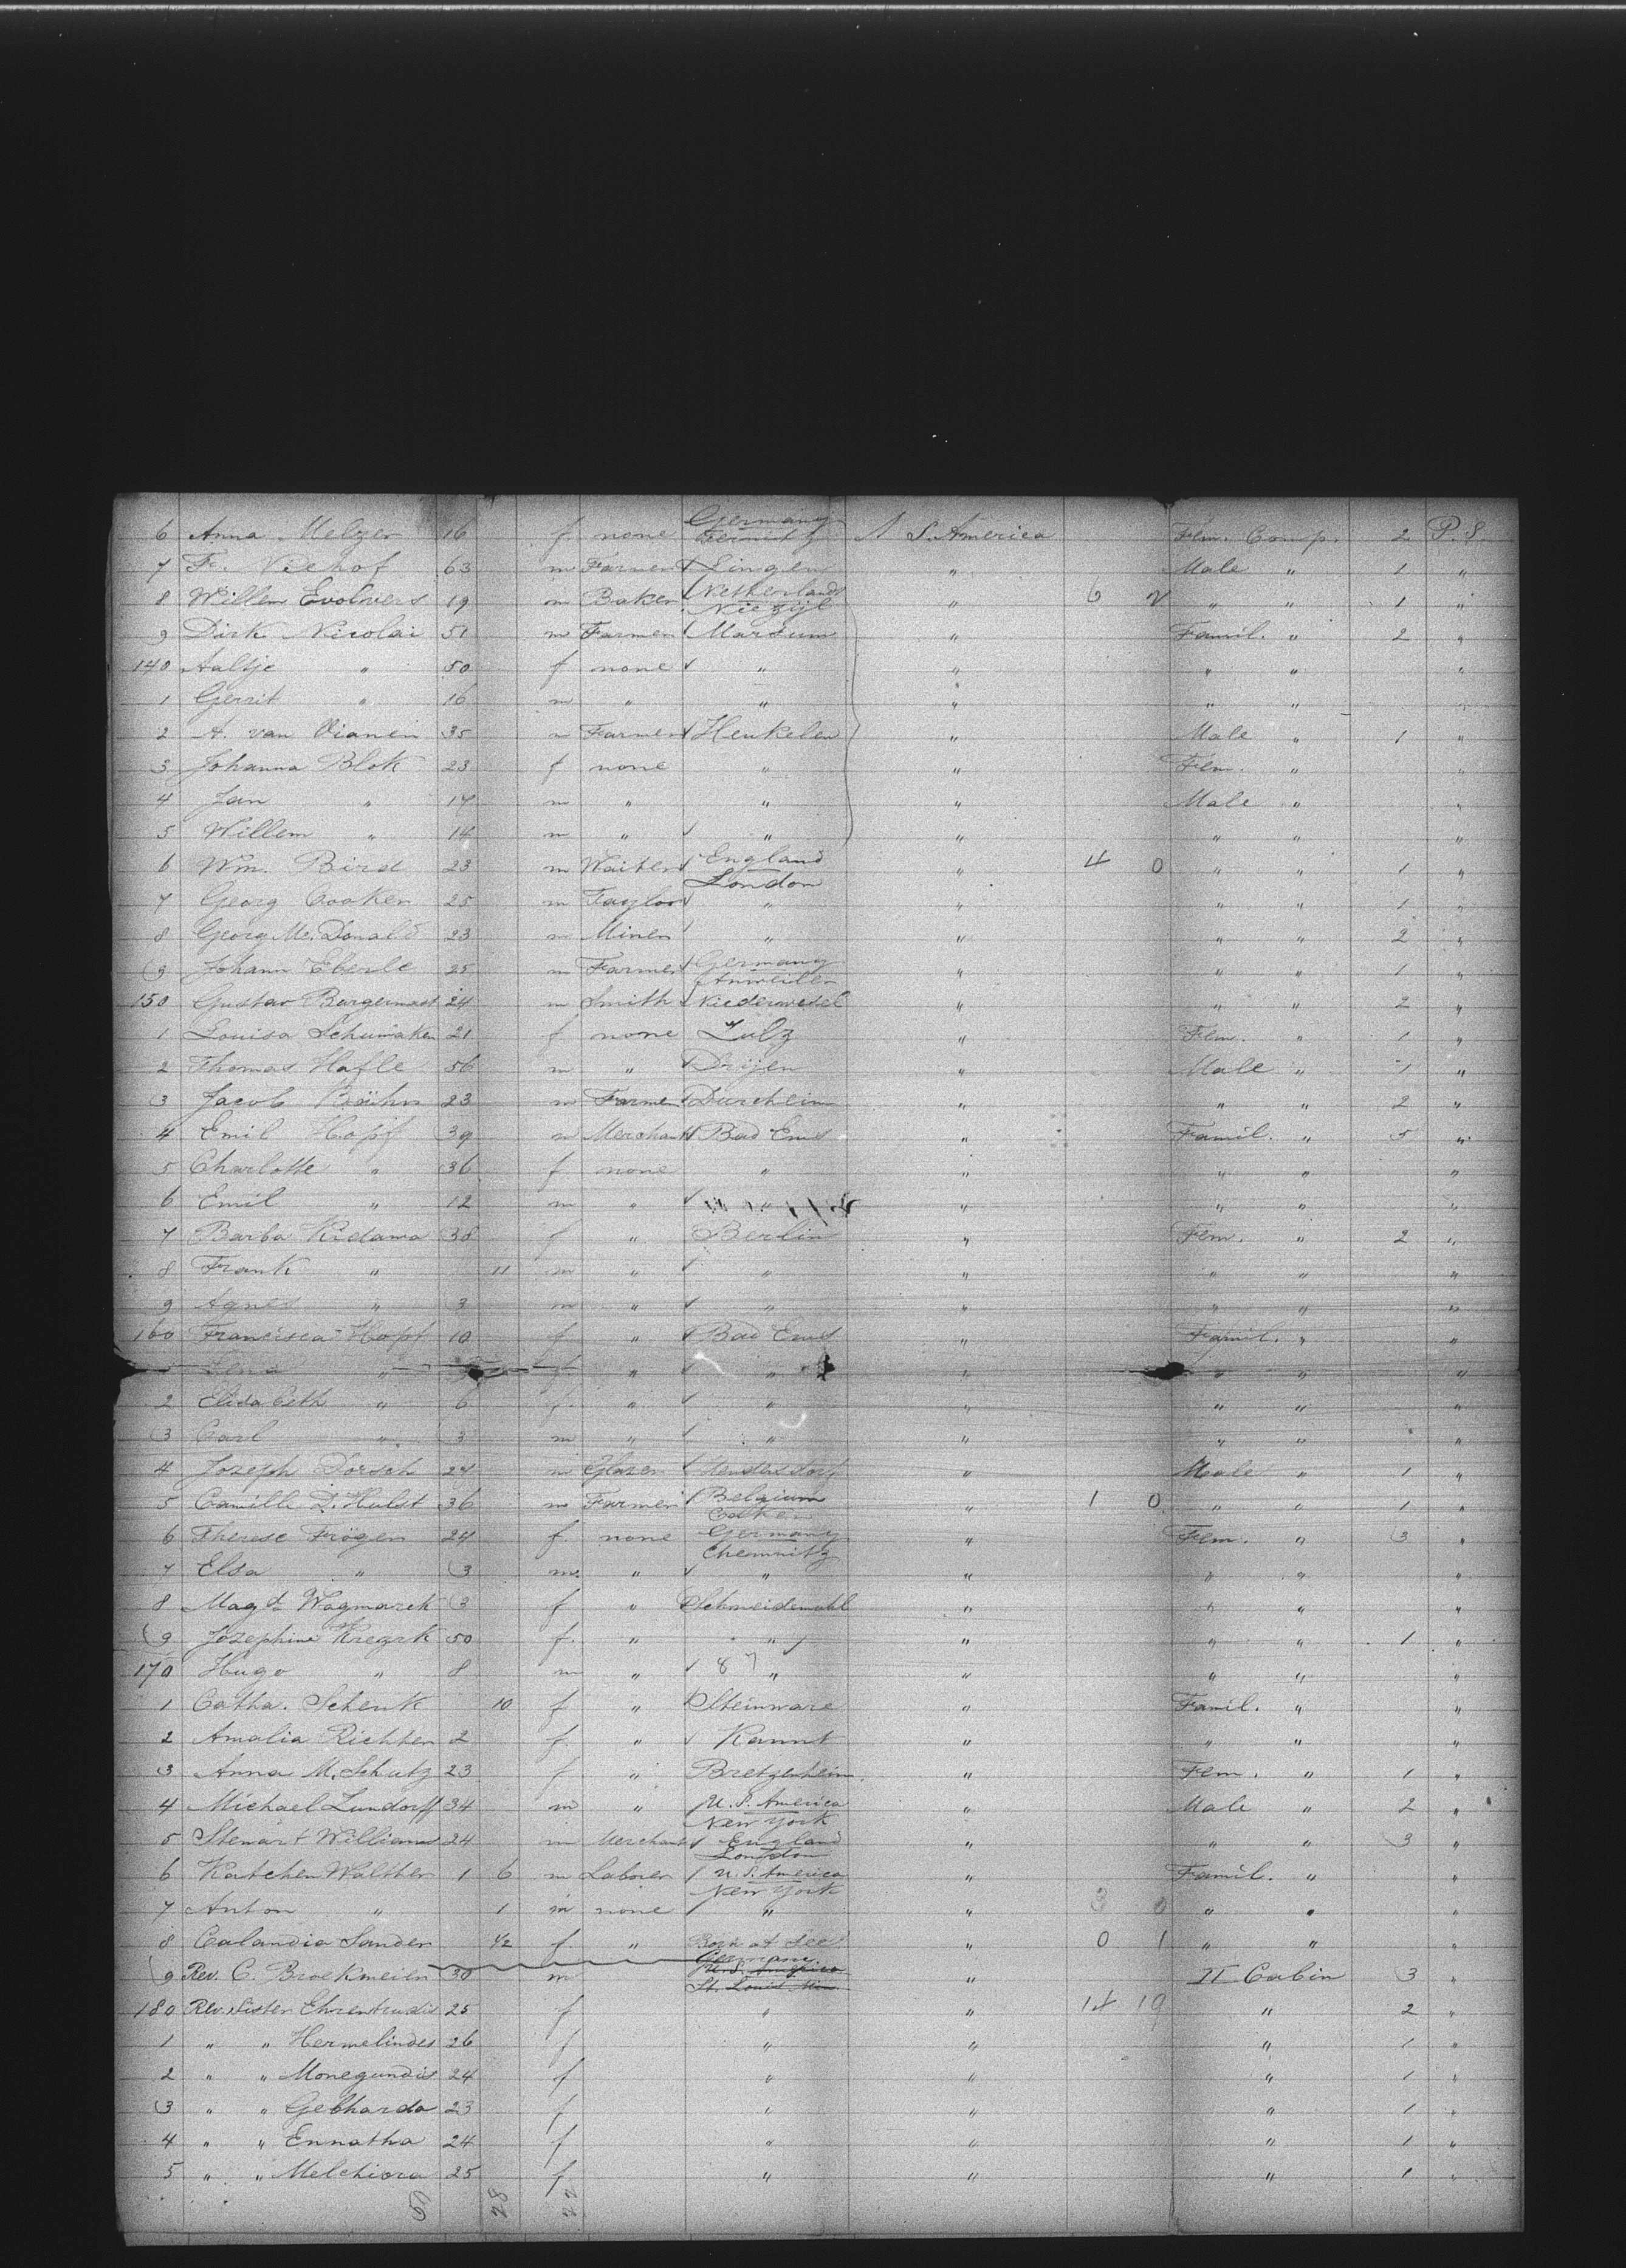 6 Anna Melzer 16 f none Germany S. America Fem. Comp. 2 P.S.
7 Fr. Niehof 63 m Farmer Lingen " Male " 1 "
8 Willem Evolvers 19 m Baker Netherlands Niezijl " 6 2 " " 1 "
9 Dirk Nicolai 51 m Farmer Marsum " Famil. " 2 "
140 Aaltje " 50 f none " " " " "
1 Gerrit " 16 m " " " " " "
2 A. van Vianen 35 m Farmer Heukelen " Male " 1 "
3 Johanna Blok 23 f none " " Fem. " "
4 Jan " 17 m " " " Male " "
5 Willem " 14 m " " " " " "
6 Wm. Bird 23 m Waiter England London " 4 0 " " 1 "
7 Georg Cooker 25 m Taylor " " " " 1 "
8 Georg Mc. Donald 23 m Miner " " " " 2 "
9 Johann Eberle 25 m Farmer Germany Anweiler " " " 1 "
150 Gustav Burgemast 24 m Smith Niederwesel " " " 2 "
1 Louisa Schumaker 21 f none Sulz " Fem. " 1 "
2 Thomas Hafle 56 m " " Male " 1 "
3 Jacob Bähr 23 m Farmer Durchheim " " " 2 "
4 Emil Hopf 39 m Merchant Bad Ems " Famil. " 5 "
5 Charlotte " 36 f none " " " " "
6 Emil " 12 m " " " " "
7 Barba Kidawa 38 f " Berlin " Fem. " 2 "
8 Frank " 11 m " " " " " "
9 Agnes " 3 m " " " " " "
160 Francisca Hopf 10 f " Bad Ems " Famil. " "
Lena " f " " " " " "
2 Elisabeth " 6 f. " " " " " "
3 Carl " 3 m " " " " " "
4 Joseph Dorsch 24 m Glazer " Male " 1 "
5 Camille D. Hulst 36 m Farmer Belgium " 1 0 " " 1 "
6 Therese Frögen 24 f. none Germany Chemnitz " Fem. " 3 "
7 Elsa " 3 m. " " " " " "
8 Magd. Wagmarek 3 f " Schneidemühl " " " "
9 Josephine Kregzk 50 f. " " " " " 1 "
170 Hugo " 8 m " 87 " " " " "
1 Catha. Schenk 10 f " Steinware " Famil. " "
2 Amalia Richter 2 f. " Kannt " " " "
3 Anna M. Schutz 23 f " Bretzenheim " Fem. " 1 "
4 Michael Lundorff 34 m " U. S. America New York " Male " 2 "
5 Stewart Williams 24 m Merchant England London " " " 3 "
6 Katchen Walther 1 6 m Laborer U. S. America New York " Famil. " "
7 Anton " 1 m none " " 3 0 " " "
8 Calandia Sander 1/2 f. " Born at See " 0 1 " " "
9 Rev. C. Broekmeier 30 m Germany U. S. America St. Louis Mo. " II Cabin 3 "
180 Rev. Sister Ehrentrudis 25 f " " 14 19 " 2 "
1 " " Hermelindes 26 f " " " 1 "
2 " " Monegundis 24 f " " " 1 "
3 " " Gebharda 23 f " " " 1 "
4 " " Ennatha 24 f " " " 1 "
5 " " Melchiora 25 f " " " 1 "
28 22